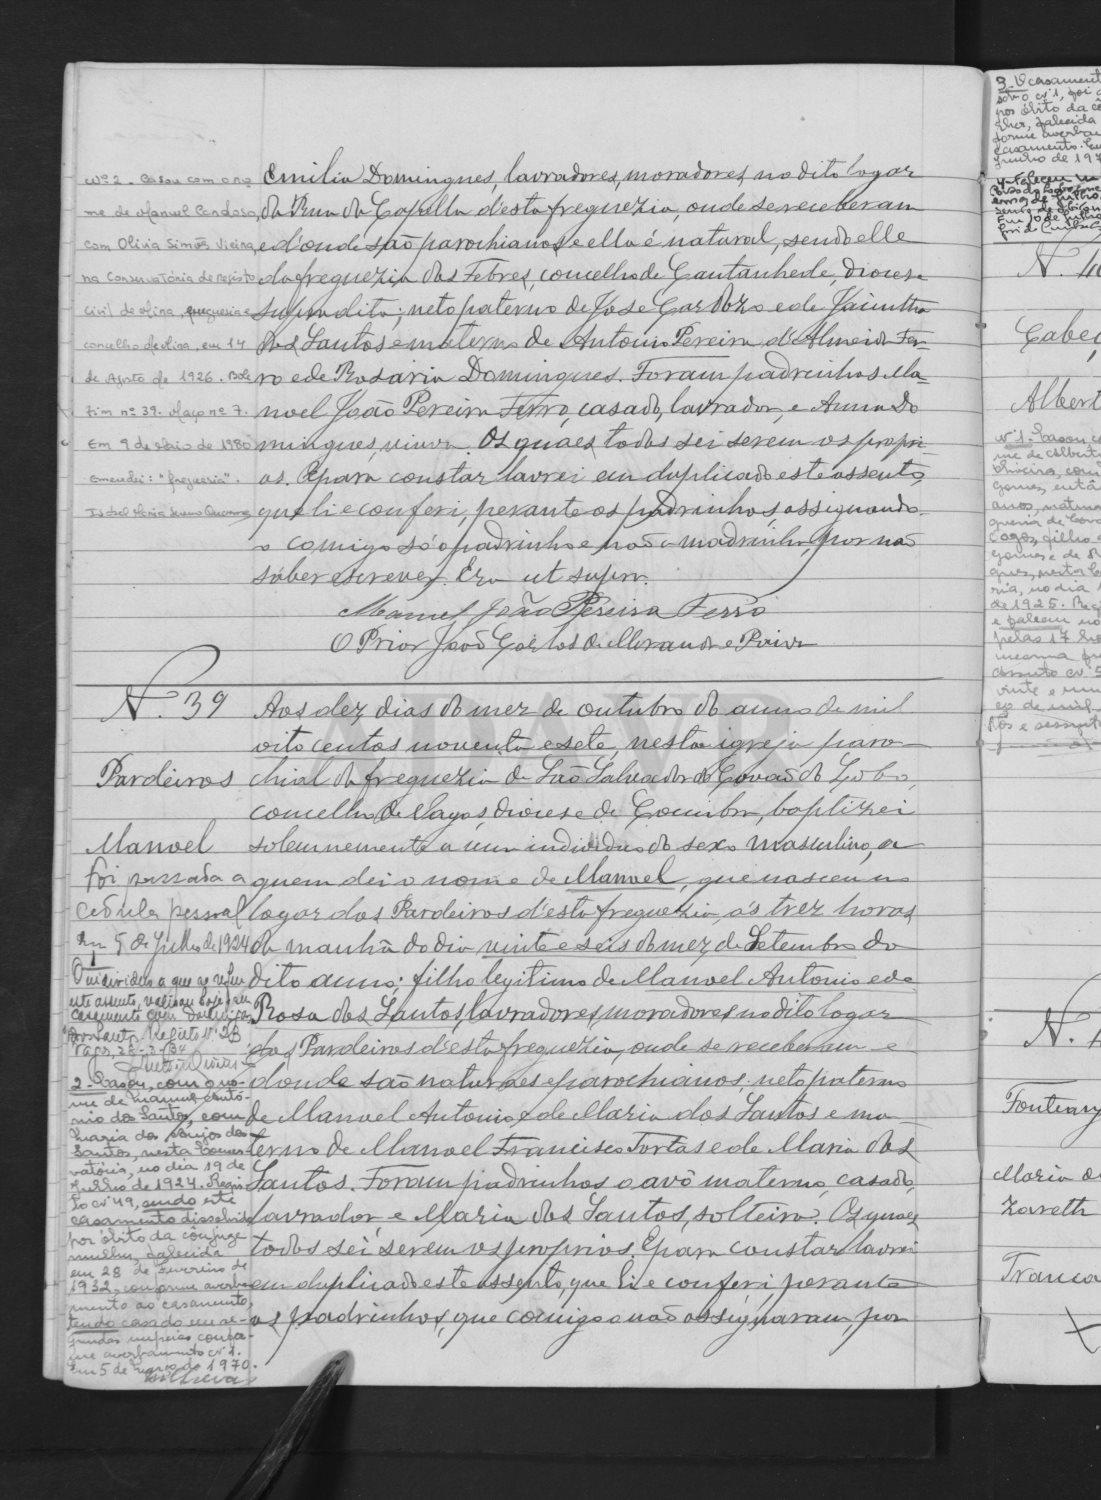 Emilia Domingues, lavradores, moradores no dito logar
da Rua da Capella d'esta freguezia, onde se receberam
e d'onde são parochianos e ella é natural, sendo elle
da freguezia das Febres, concelho de Cantanhede, diocese
supradita; neto paterno de José Cardozo e de Jacintha
dos Santos e materno de Antonio Pereira d'Almeida Fer-
ro e de Rosaria Domingues. Foram padrinhos Ma-
noel João Pereira Ferro, casado, lavrador, e Anna Do
mingues, viuva. Os quaes todos sei serem os propri-
os. E para constar lavrei em duplicado este assento,
que li e conferi, perante os padrinhos, assignando-
o comigo só o padrinho e não a madrinha, por não
saber escrever. Era ut supra.
Manuel João Pereira Ferro
O Prior João Carlos de Miranda e Paiva
Nº 2. Casou com o no
me de Manuel Cardoso,
com Olivia Simões Vieira,
na Conservatória do registo
civil de Mira, freguesia e
concelho de Mira, em 14
de Agosto de 1926. Bole
tim nº 39. Maço nº 7.
Em 9 de Maio de 1980
Emendei: "freguesia".
N. 39
Pardeiros
Manoel
foi passada a
cedula pessoal
Em 5 de Julho de 1924
O individuo a que se refere
este assento, realisou hoje o seu
casamento com
dos Santos. Registo Nº 23
Vagos, 28-3-34
2. Casou, com o no-
me de Manuel Antó-
nio dos Santos, com
Maria dos Anjos dos
Santos, nesta Conser
vatória, no dia 19 de
Julho de 1924. Regis-
to nº 49, sendo este
casamento dissolvido
por óbito da conjuge
mulher, falecida
em 28 de Fevereiro de
1932, conforme averba
mento ao casamento,
tendo casado em se-
gundas nupcias confor-
me averbamento nº 1.
Em 5 de Março de 1970.
Aos dez dias do mez de outubro do anno de mil
oito centos noventa e sete, nesta igreja paro-
chial da freguezia de São Salvador do Covão do Lobo,
concelho de Vagos, diocese de Coimbra, baptizei
solemnemente a um individuo do sexo masculino, a
quem dei o nome de Manoel, que nasceu no
logar dos Pardeiros d'esta freguezia, ás trez horas
da manhã do dia vinte e seis do mez de Setembro do
dito anno; filho legitimo de Manoel Antonio e de
Rosa dos Santos, lavradores, moradores no dito logar
dos Pardeiros d'esta freguezia, onde se receberam e
donde são naturaes e parochianos; neto paterno
de Manoel Antonio e de Maria dos Santos e ma-
terno de Manoel Francisco Tortas e de Maria dos
Santos. Foram padrinhos o avô materno, casado,
lavrador, e Maria dos Santos, solteira. Os quaes
todos sei serem os proprios. E para constar lavrei
em duplicado este assento, que li e conferi perante
os padrinhos, que comigo não assignaram, por
3. O casamento
sob o nº 1, foi
por óbito da
falecida
casamento. Em
Junho de 197
N.
Albert
Nº 1. Casou
me de Alberto
Oliveira, com
Gomes, então
anos, natural
filho
Gomes e de
ria, no dia
de 1925.
e faleceu no
pelas 17 ho
mesma fre
vinte e um
N.
Maria
Zareth
Franca